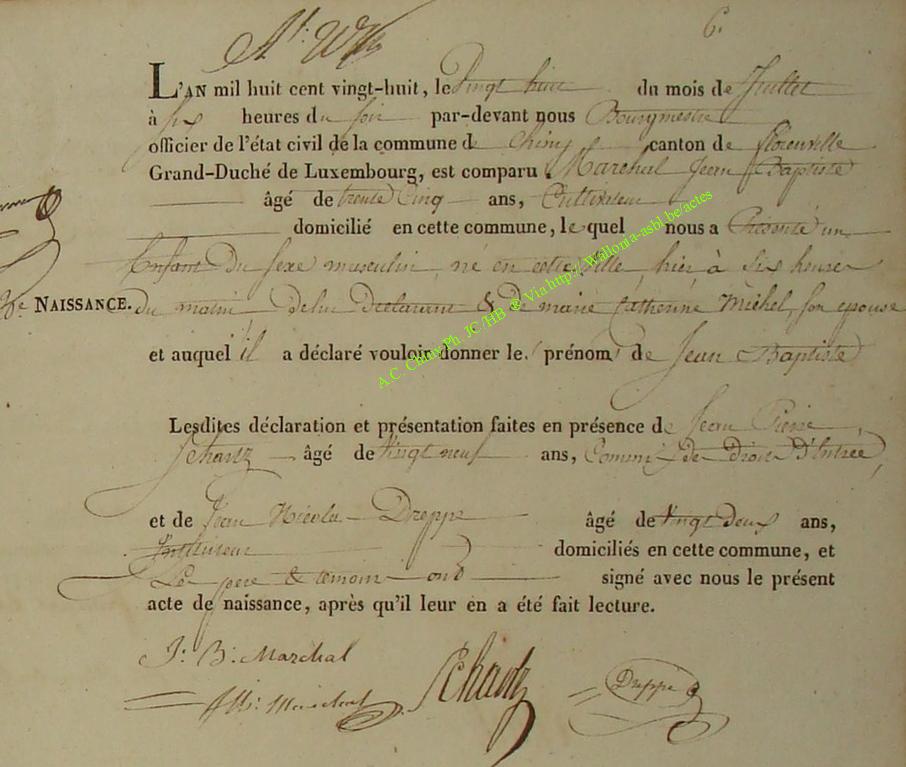 6.
L'AN mil huit cent vingt-huit, le Vingt huit du mois de Juillet
à six heures du soir par-devant nous Bourgmestre
officier de l'état civil de la commune de Chiny canton de florenville
Grand-Duché de Luxembourg, est comparu Marchal Jean Baptiste
âgé de trente Cinq ans, Cultivateur
domicilié en cette commune, lequel nous a Présenté un
Enfant du sexe masculin, né en cette ville, hier à six heures
NAISSANCE. du matin de lui Declarant & de marie Catherine Michel, son epouse
et auquel il a déclaré vouloir donner le prénom de Jean Baptiste
Lesdites déclaration et présentation faites en présence de Jean Pierre
Schantz âgé de Vingt neuf ans, Commis de droits d'Entrée,
et de Jean Nicolas Dreppe âgé de vingt deux ans,
domiciliés en cette commune, et
Le pere & temoins ont signé avec nous le présent
acte de naissance, après qu'il leur en a été fait lecture.
J: B: Marchal
Schantz
Dreppe
A.C. Chiny Ph. JC/HB © Via http://Wallonia-asbl.be/actes